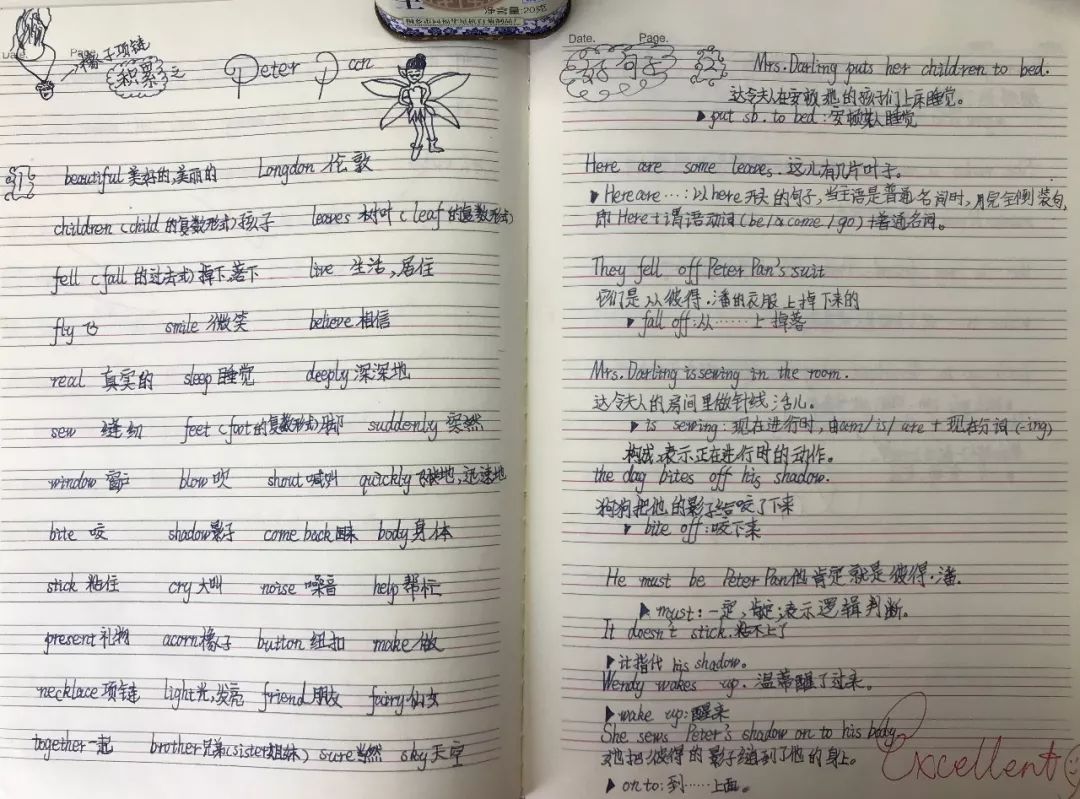 净含量:20克
Date. Page.
橡子项链
积累之 Peter Pan
词
beautiful 美好的,美丽的 Longdon 伦敦
children (child 的复数形式) 孩子 leaves 树叶 (leaf 的复数形式)
fell (fall 的过去式) 掉下,落下 live 生活,居住
fly 飞 smile 微笑 believe 相信
real 真实的 sleep 睡觉 deeply 深深地
sew 缝纫 feet (foot 的复数形式) 脚 suddenly 突然
window 窗户 blow 吹 shout 喊叫 quickly 飞快地,迅速地
bite 咬 shadow 影子 come back 回来 body 身体
stick 粘住 cry 大叫 noise 噪音 help 帮忙
present 礼物 acorn 橡子 button 纽扣 make 做
necklace 项链 light 光,发亮 friend 朋友 fairy 仙女
together 一起 brother 兄弟 (sister 姐妹) sure 当然 sky 天空
Date. Page.
句子 Mrs. Darling puts her children to bed.
达令夫人在安顿她的孩子们上床睡觉。
▶ put sb. to bed: 安顿某人睡觉
Here are some leaves. 这儿有几片叶子。
▶ Here are …: 以 here 开头的句子,当主语是普通名词时,用完全倒装句
即 Here + 谓语动词 (be / come / go) + 普通名词。
They fell off Peter Pan's suit
它们是从彼得·潘的衣服上掉下来的
▶ fall off: 从……上掉落
Mrs. Darling is sewing in the room.
达令夫人的房间里做针线活儿。
▶ is sewing: 现在进行时,由 am / is / are + 现在分词 (-ing)
构成,表示正在进行时的动作。
the dog bites off his shadow.
狗狗把他的影子给咬了下来
▶ bite off: 咬下来
He must be Peter Pan 他肯定就是彼得·潘.
▶ must: 一定,肯定;表示逻辑判断。
It doesn't stick. 粘不上了
▶ it 指代 his shadow。
Wendy wakes up. 温蒂醒了过来。
▶ wake up: 醒来
She sews Peter's shadow on to his body
她把彼得的影子缝到了他的身上。
▶ on to: 到……上面。
Excellent